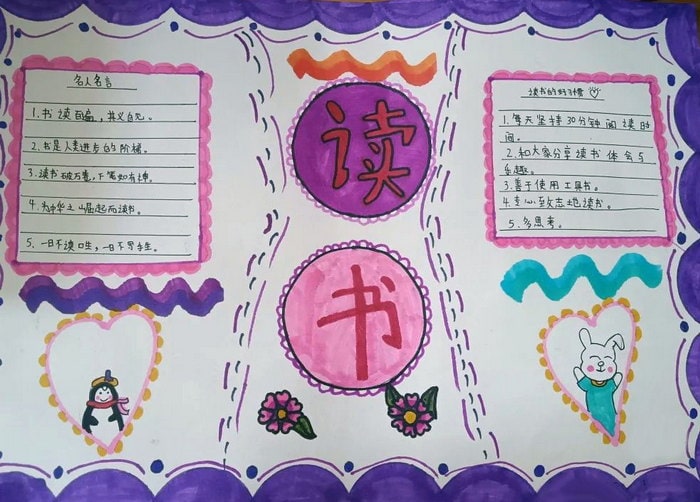 名人名言
1.书读百遍，其义自见。
2.书是人类进步的阶梯。
3.读书破万卷，下笔如有神。
4.为中华之崛起而读书。
5.一日不读口生，一日不写手生。
读
书
读书的好习惯
1.每天坚持30分钟阅读时
间。
2.和大家分享读书体会与
乐趣。
3.善于使用工具书。
4.专心致志地读书。
5.多思考。